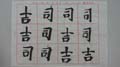 吉司司吉
吉吉吉司
司司吉吉